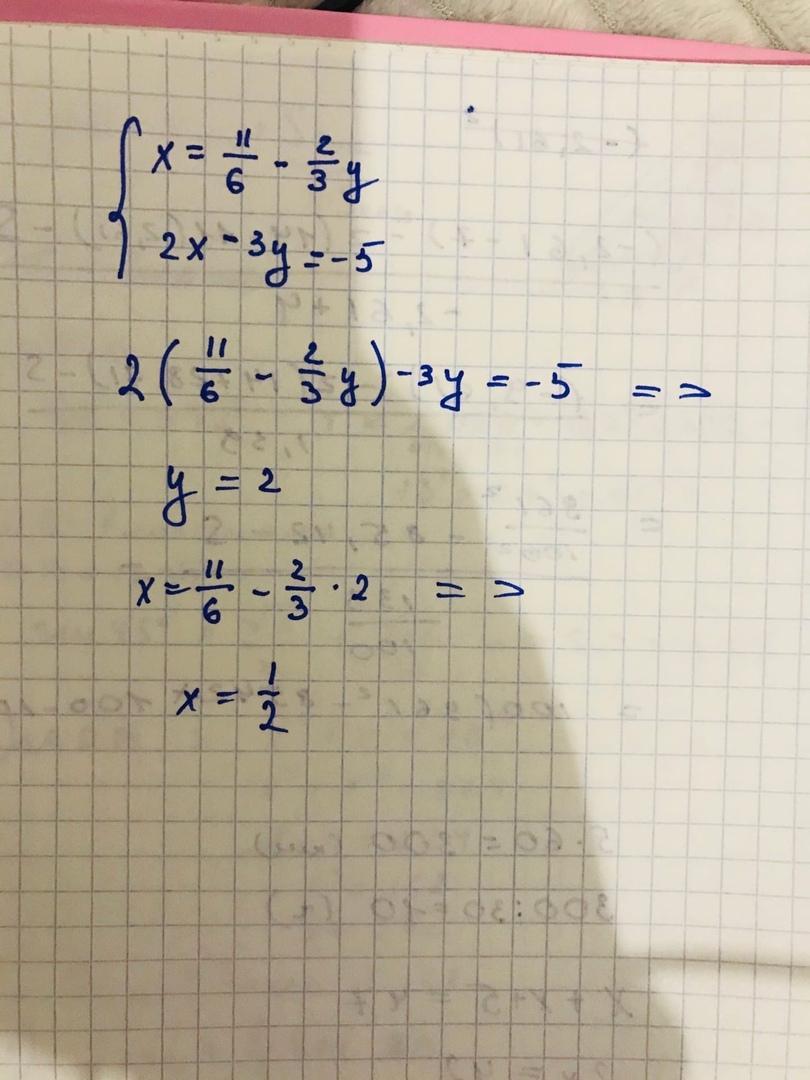 x = 11/6 - 2/3 y
2x - 3y = -5
2(11/6 - 2/3 y) - 3y = -5 =>
y = 2
x = 11/6 - 2/3 · 2 =>
x = 1/2